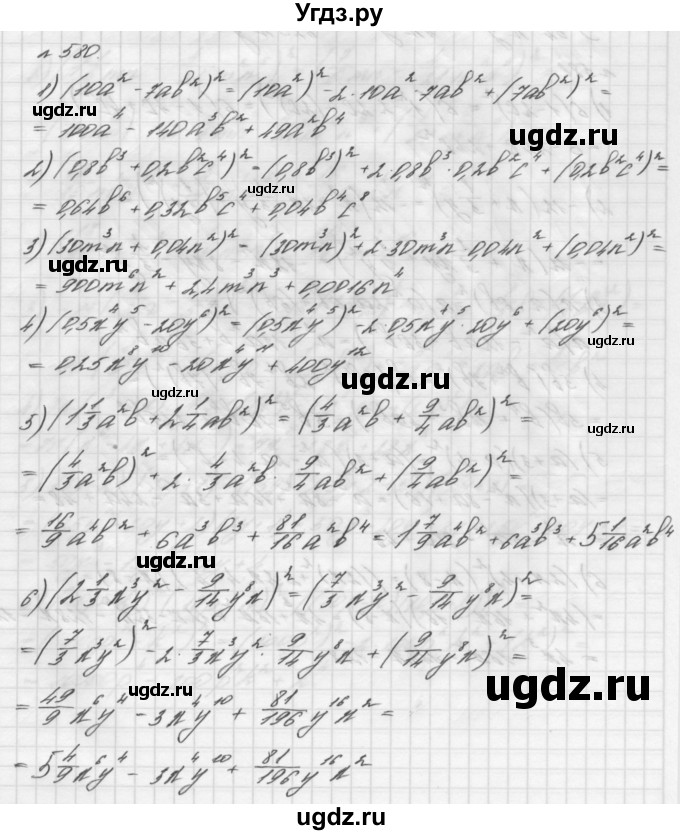 Угдз.ру
№ 580.
1) (10a² - 7ab²)² = (10a²)² - 2 · 10a² · 7ab² + (7ab²)² =
= 100a⁴ - 140a³b² + 49a²b⁴
ugdz.ru
2) (0,8b³ + 0,2b²c⁴)² = (0,8b³)² + 2 · 0,8b³ · 0,2b²c⁴ + (0,2b²c⁴)² =
ugdz.ru
= 0,64b⁶ + 0,32b⁵c⁴ + 0,04b⁴c⁸
3) (30m³n + 0,04n²)² = (30m³n)² + 2 · 30m³n · 0,04n² + (0,04n²)² =
ugdz.ru
= 900m⁶n² + 2,4m³n³ + 0,0016n⁴
4) (0,5x⁴y⁵ - 20y⁶)² = (0,5x⁴y⁵)² - 2 · 0,5x⁴y⁵ · 20y⁶ + (20y⁶)² =
ugdz.ru
= 0,25x⁸y¹⁰ - 20x⁴y¹¹ + 400y¹²
ugdz.ru
5) (1 1/3 a²b + 2 1/4 ab²)² = (4/3 a²b + 9/4 ab²)² =
ugdz.ru
= (4/3 a²b)² + 2 · 4/3 a²b · 9/4 ab² + (9/4 ab²)² =
= 16/9 a⁴b² + 6a³b³ + 81/16 a²b⁴ = 1 7/9 a⁴b² + 6a³b³ + 5 1/16 a²b⁴
ugdz.ru
6) (2 1/3 x³y² - 9/14 y⁸x)² = (7/3 x³y² - 9/14 y⁸x)² =
= (7/3 x³y²)² - 2 · 7/3 x³y² · 9/14 y⁸x + (9/14 y⁸x)² =
ugdz.ru
= 49/9 x⁶y⁴ - 3x⁴y¹⁰ + 81/196 y¹⁶x² =
ugdz.ru
= 5 4/9 x⁶y⁴ - 3x⁴y¹⁰ + 81/196 y¹⁶x²
ugdz.ru